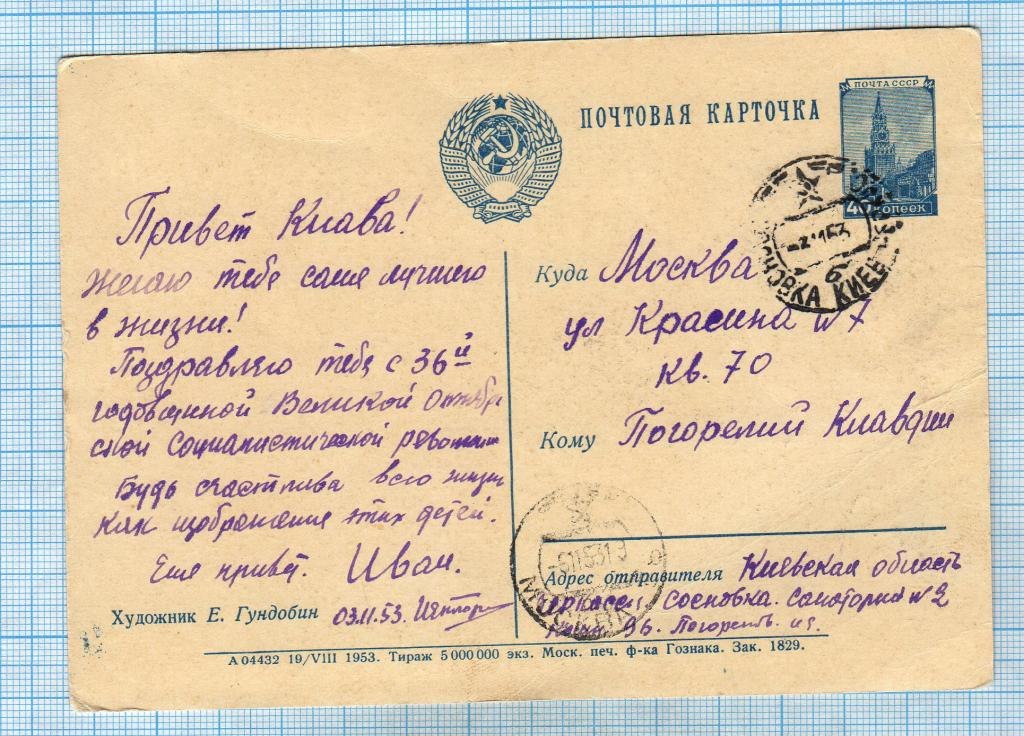 ПОЧТОВАЯ КАРТОЧКА
ПОЧТА СССР
40 КОПЕЕК
СОСНОВКА КИЕВ
б
Привет Клава!
Желаю тебе самое лучшего
в жизни!
Поздравляю тебя с 36й
годовщиной Великой Октябрь
ской Социалистической
Будь счастлива всю жизнь
как изображение этих детей.
Еще привет. Иван.
Художник Е. Гундобин
03.11.53.
Куда Москва
ул Красина N7
кв. 70
Кому Погорелий Клавдии
МОСКВА
Адрес отправителя Киевская область
Черкассы, Сосновка. Санаторий N2
96. Погорел
А 04432 19/VIII 1953. Тираж 5 000 000 экз. Моск. печ. ф-ка Гознака. Зак. 1829.